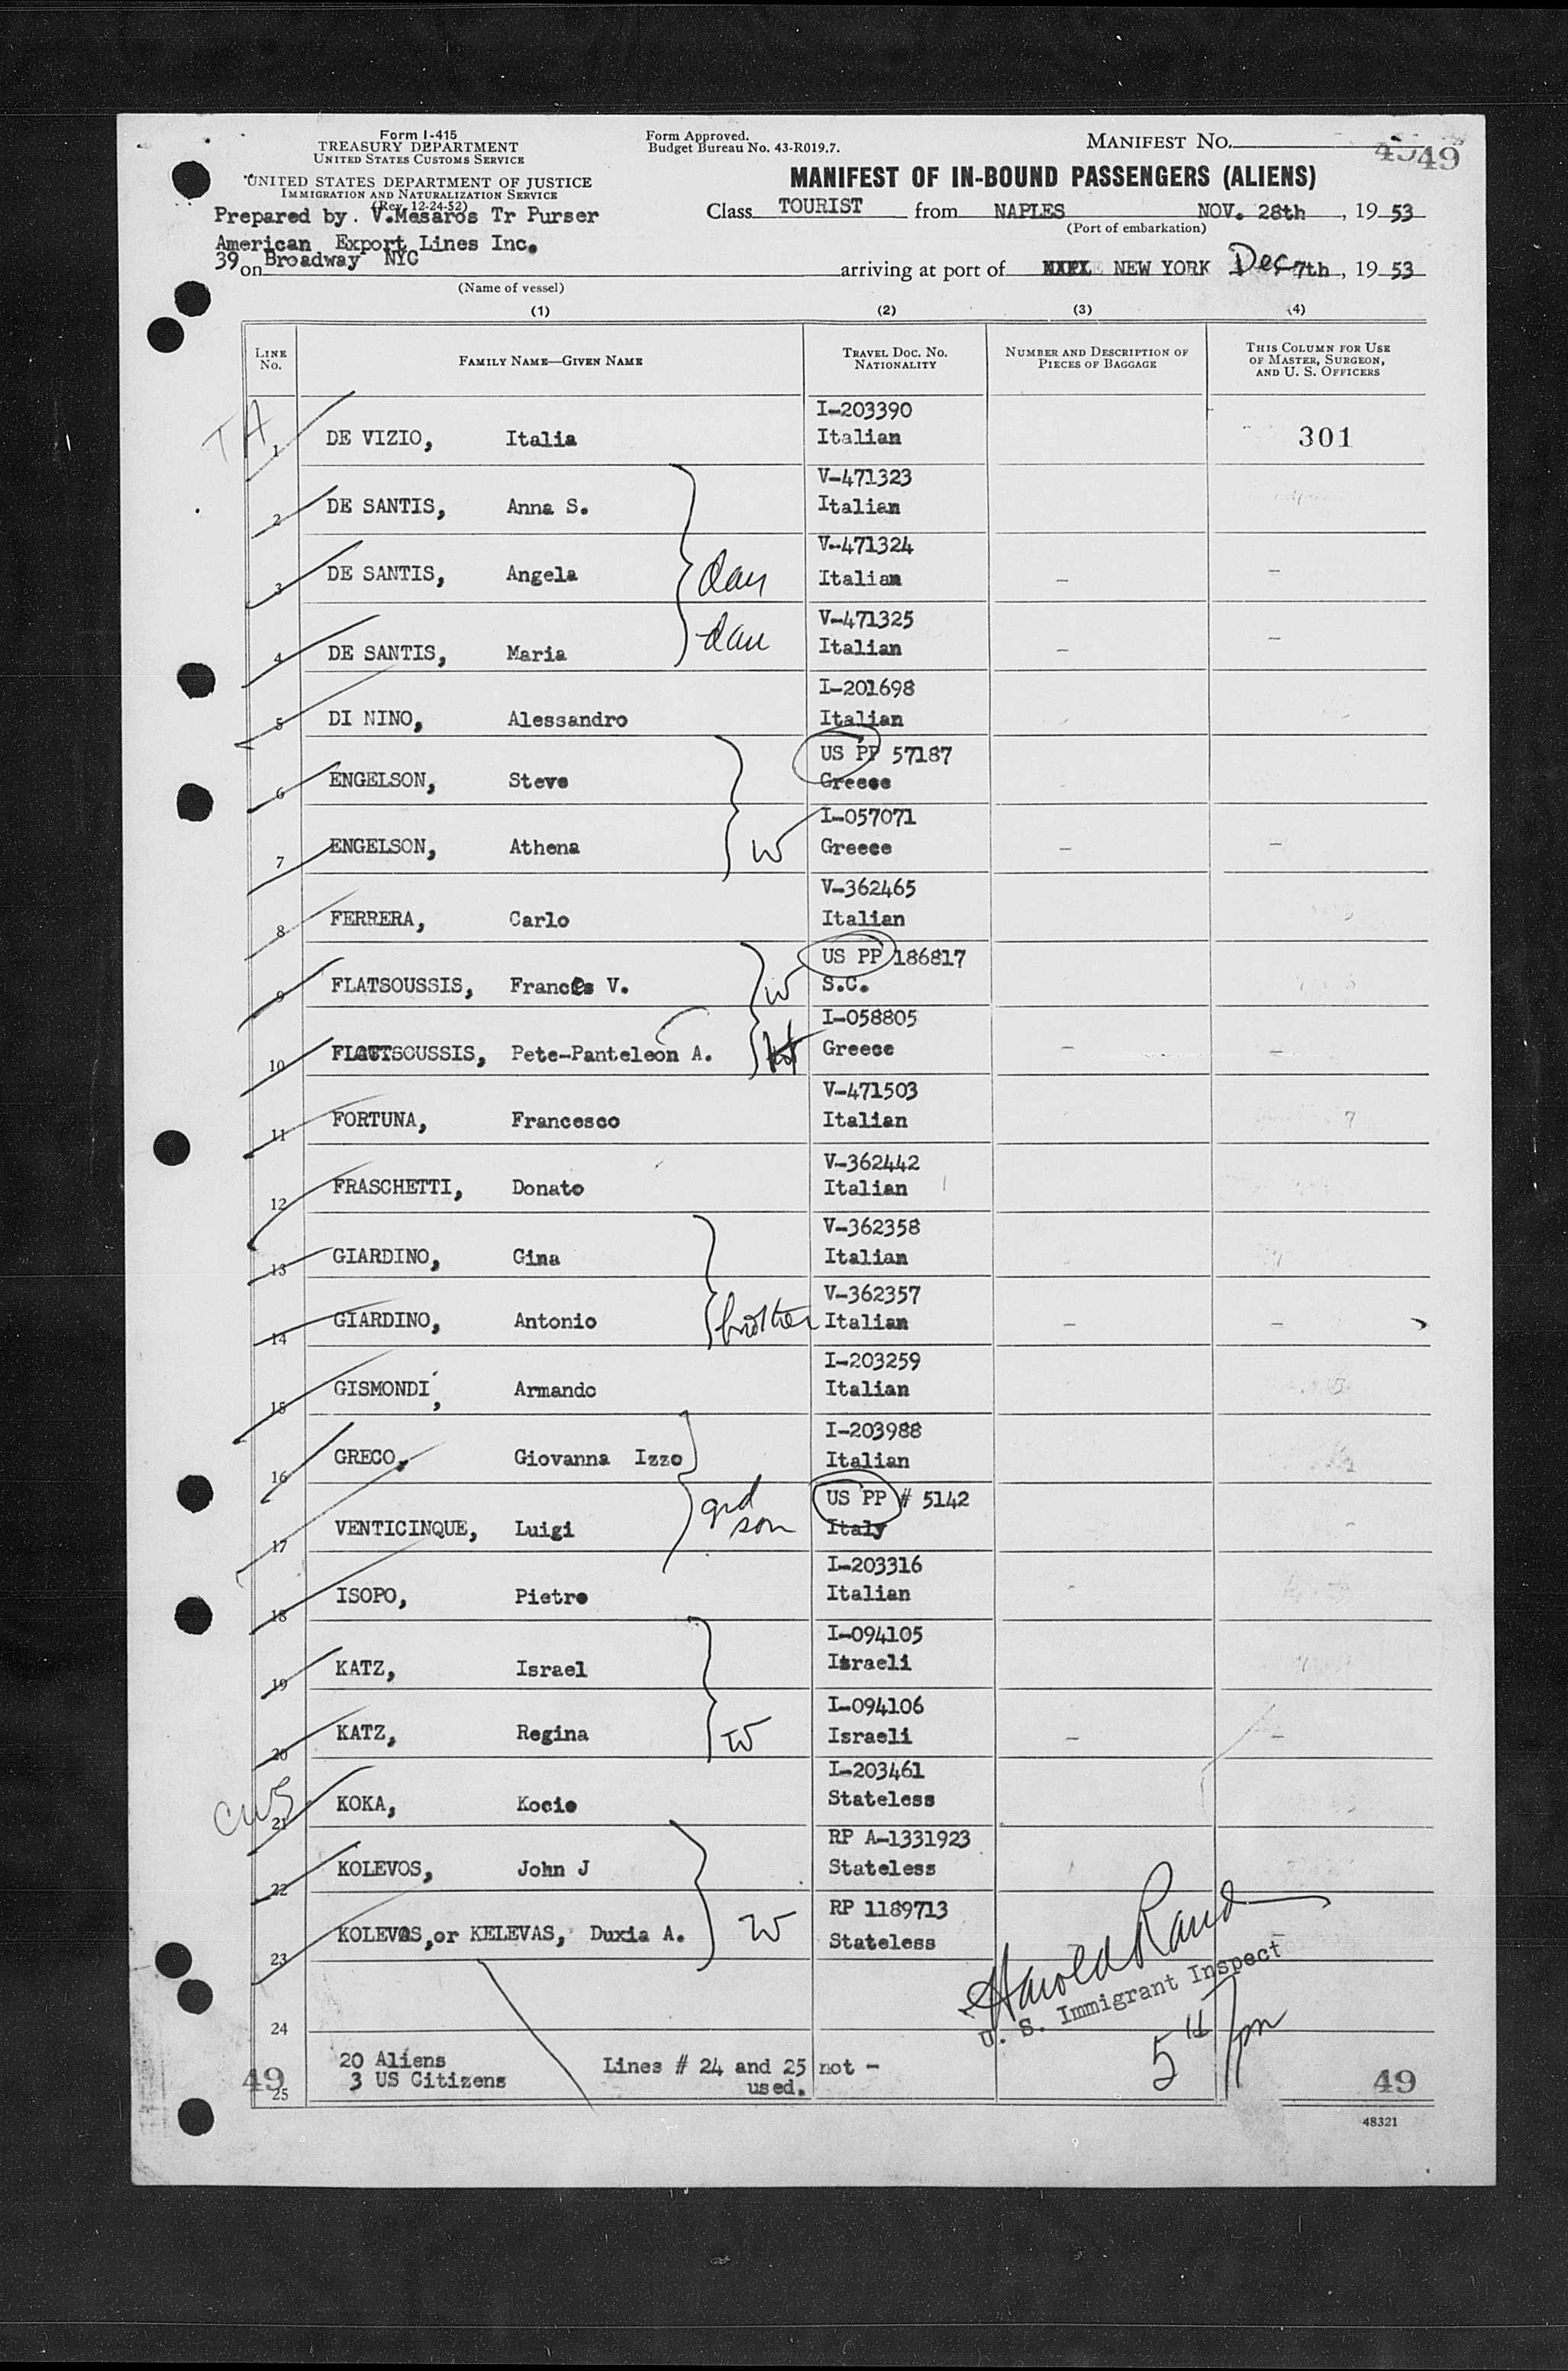 Form I-415
TREASURY DEPARTMENT
UNITED STATES CUSTOMS SERVICE
UNITED STATES DEPARTMENT OF JUSTICE
IMMIGRATION AND NATURALIZATION SERVICE
(Rev. 12-24-52)
Prepared by. V.Mesaros Tr Purser
American Export Lines Inc.
39 Broadway NYC
on
(Name of vessel)
Form Approved.
Budget Bureau No. 43-R019.7.
MANIFEST NO. 49
MANIFEST OF IN-BOUND PASSENGERS (ALIENS)
Class TOURIST from NAPLES NOV. 28th, 19 53
(Port of embarkation)
arriving at port of NEW YORK Dec 7th, 19 53
(1) (2) (3) (4)
LINE No. FAMILY NAME—GIVEN NAME TRAVEL DOC. NO. NATIONALITY NUMBER AND DESCRIPTION OF PIECES OF BAGGAGE THIS COLUMN FOR USE OF MASTER, SURGEON, AND U. S. OFFICERS
I-203390
TA 1 DE VIZIO, Italia Italian 301
V-471323
2 DE SANTIS, Anna S. Italian
V-471324
3 DE SANTIS, Angela dau Italian - -
V-471325
4 DE SANTIS, Maria dau Italian - -
I-201698
5 DI NINO, Alessandro Italian
US PP 57187
6 ENGELSON, Steve Greece
I-057071
7 ENGELSON, Athena W Greece - -
V-362465
8 FERRERA, Carlo Italian
US PP 186817
9 FLATSOUSSIS, Frances V. W S.C.
I-058805
10 FLATSOUSSIS, Pete-Panteleon A. Greece - -
V-471503
11 FORTUNA, Francesco Italian 7
V-362442
12 FRASCHETTI, Donato Italian
V-362358
13 GIARDINO, Gina Italian
V-362357
14 GIARDINO, Antonio brother Italian - -
I-203259
15 GISMONDI, Armando Italian
I-203988
16 GRECO, Giovanna Izzo Italian
US PP # 5142
17 VENTICINQUE, Luigi grd son Italy
I-203316
18 ISOPO, Pietro Italian
I-094105
19 KATZ, Israel Israeli
I-094106
20 KATZ, Regina W Israeli - -
I-203461
CWS 21 KOKA, Kocie Stateless
RP A-1331923
22 KOLEVOS, John J Stateless
RP 1189713
23 KOLEVOS, or KELEVAS, Duxia A. W Stateless
Harold Rand
U. S. Immigrant Inspect
24
20 Aliens Lines # 24 and 25 not -
3 US Citizens used.
49 25 49
48321